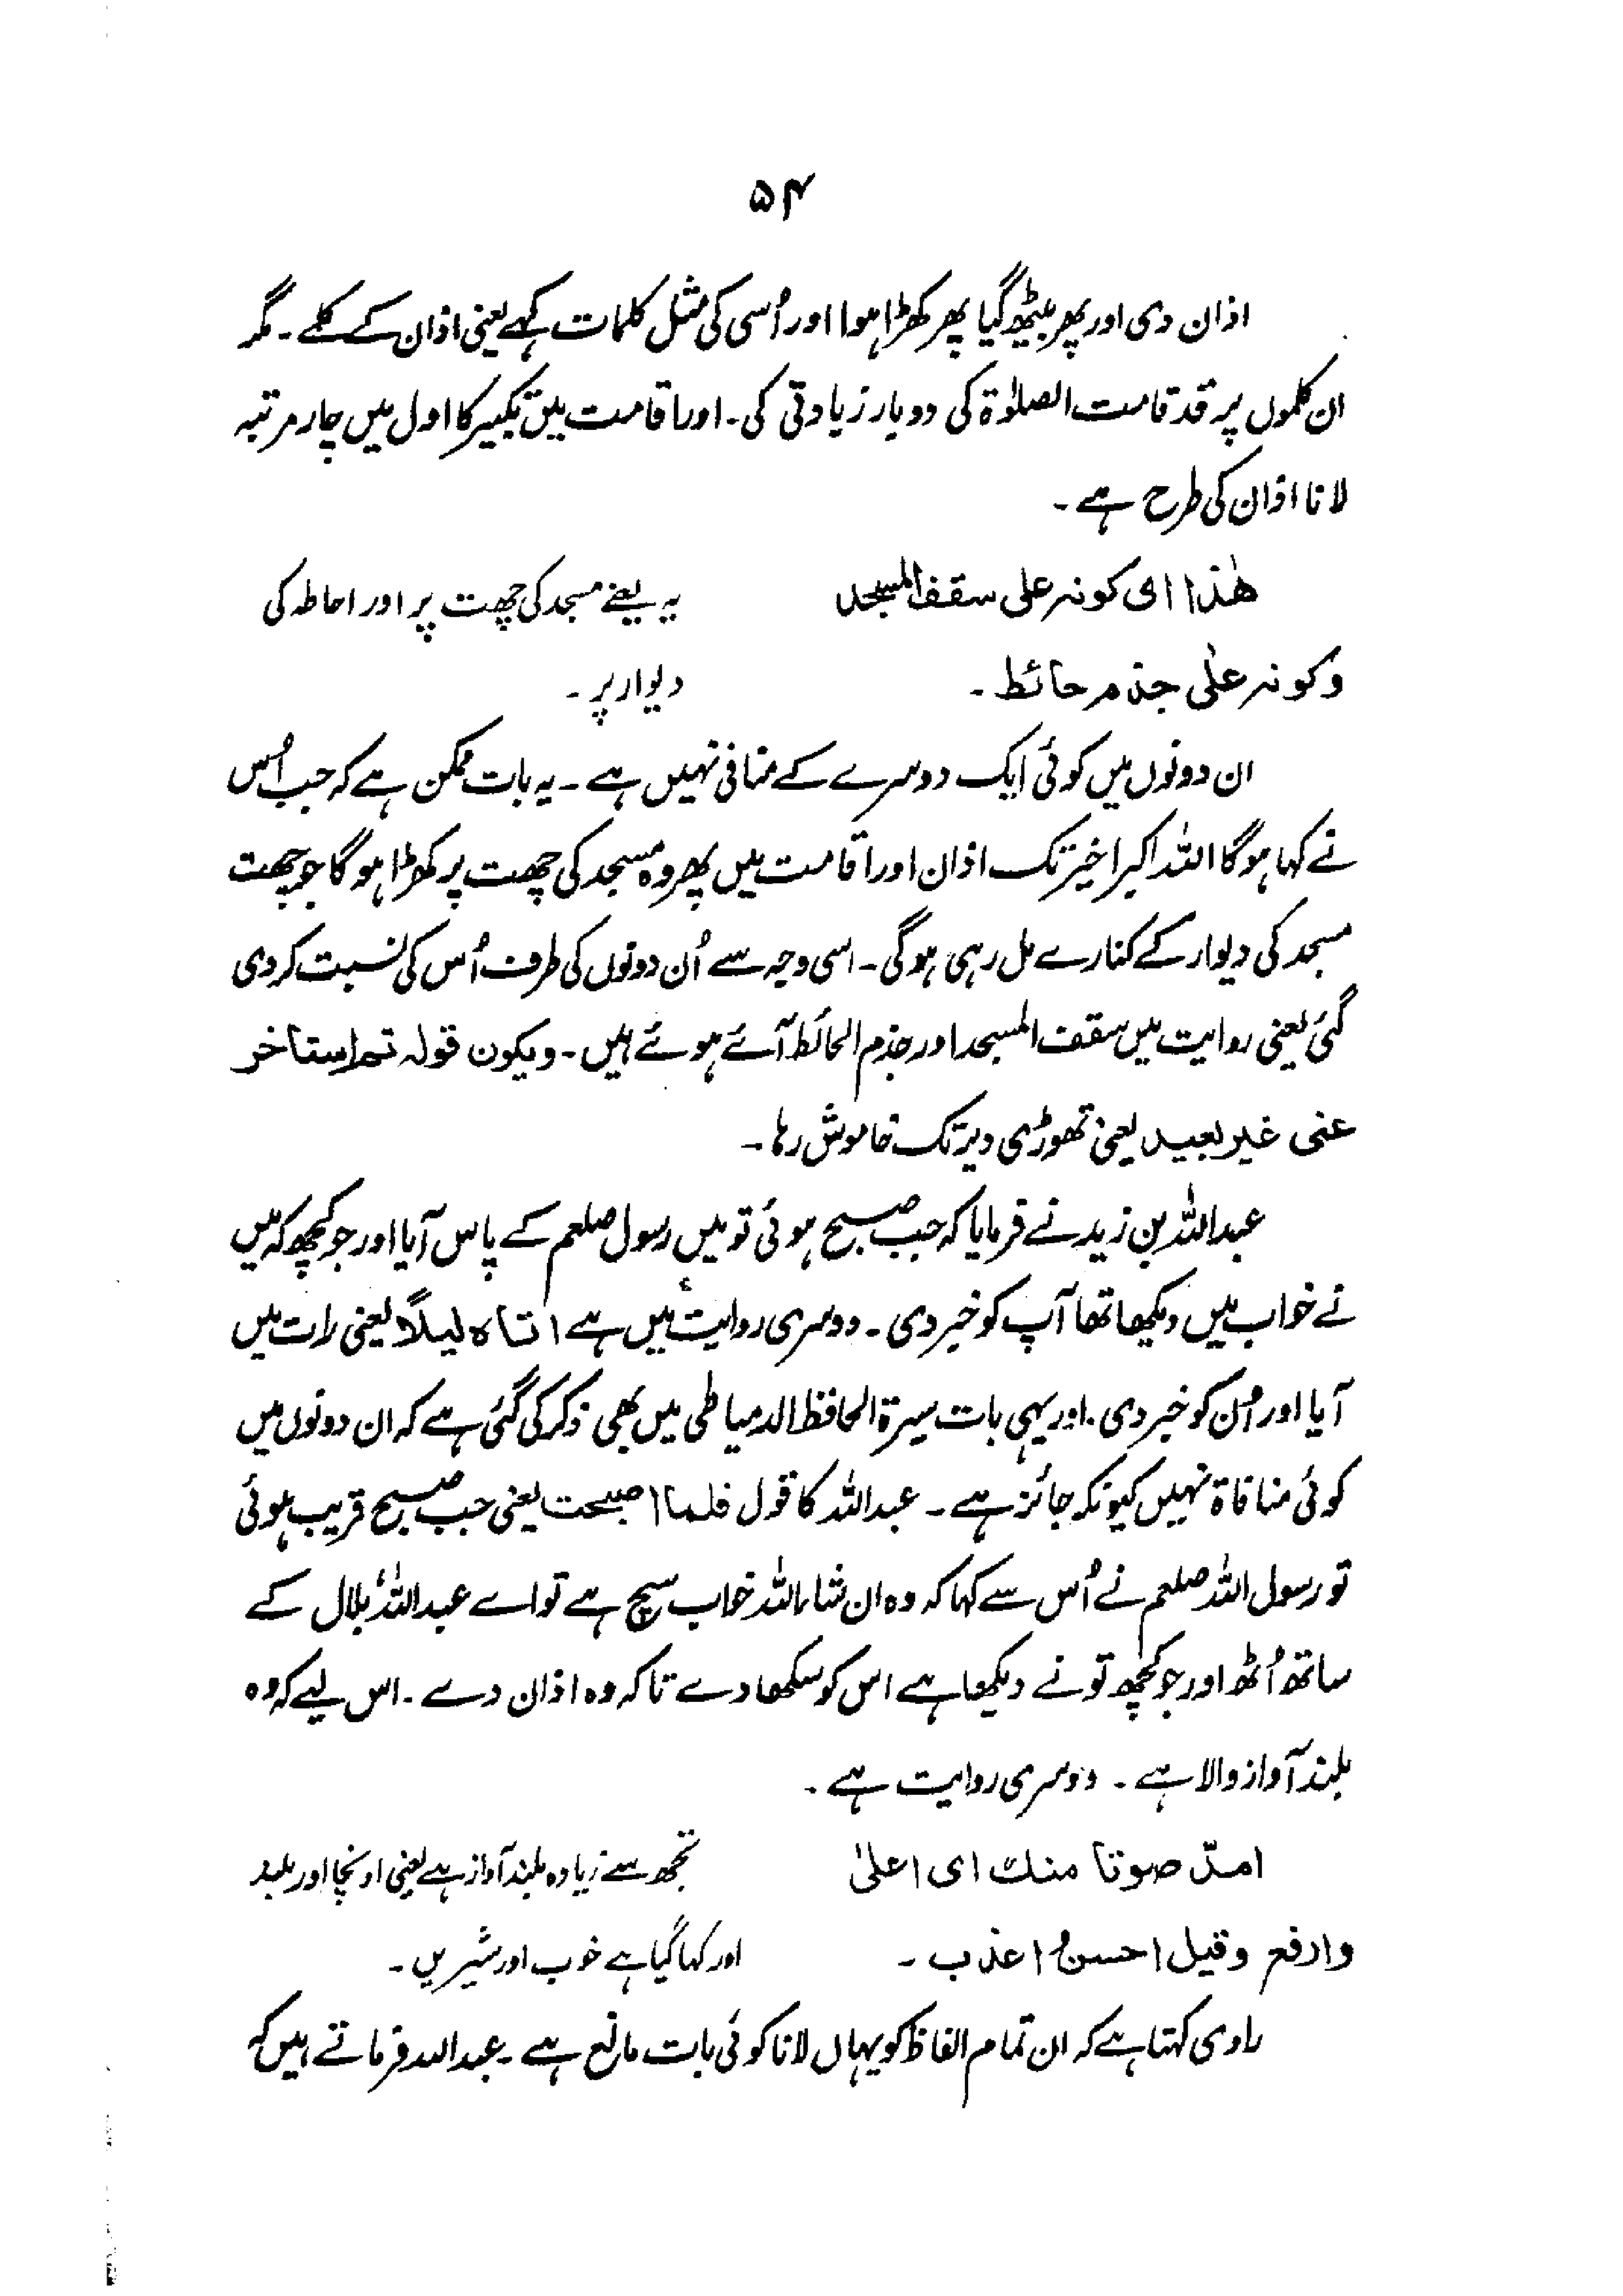 ۵۴
اذان دی اور پھر بیٹھ گیا پھر کھڑا ہوا اور اُسی کی مثل کلمات کہے یعنی اذان کے کلمے۔ مگر
ان کلموں پر قد قامت الصلوٰۃ کی دو بار زیادتی کی۔ اور اقامت میں تکبیر کا اول میں چار مرتبہ
لانا اذان کی طرح ہے۔
ھٰذا ای کونہ علی سقف المسجد یہ یعنے مسجد کی چھت پر اور احاطہ کی
وکونہ علٰی جذم حائط۔ دیوار پر۔
ان دونوں میں کوئی ایک دوسرے کے منافی نہیں ہے۔ یہ بات ممکن ہے کہ جب اُس
نے کہا ہوگا اللہ اکبر اخیر تک اذان اور اقامت میں پھر وہ مسجد کی چھت پر کھڑا ہوگا جو چھت
مسجد کی دیوار کے کنارے مل رہی ہوگی۔ اسی وجہ سے اُن دونوں کی طرف اُس کی نسبت کر دی
گئی یعنی روایت میں سقف المسجد اور جذم الحائط آئے ہوئے ہیں۔ ویکون قولہ ثم استاخر
عنی غیر بعید یعنی تھوڑی دیر تک خاموش رہا۔
عبداللہ بن زید نے فرمایا کہ جب صبح ہوئی تو میں رسول صلعم کے پاس آیا اور جو کچھ کہ میں
نے خواب میں دیکھا تھا آپ کو خبر دی۔ دوسری روایت میں ہے اتاہ لیلاً یعنی رات میں
آیا اور اُن کو خبر دی۔ اور یہی بات سیرۃ الحافظ الدمیاطی میں بھی ذکر کی گئی ہے کہ ان دونوں میں
کوئی منافاۃ نہیں کیونکہ جائز ہے۔ عبداللہ کا قول فلما اصبحت یعنی جب صبح قریب ہوئی
تو رسول اللہ صلعم نے اُس سے کہا کہ وہ ان شاء اللہ خواب سچ ہے تو اے عبداللہ بلال کے
ساتھ اُٹھ اور جو کچھ تو نے دیکھا ہے اس کو سکھا دے تاکہ وہ اذان دے۔ اس لیے کہ وہ
بلند آواز والا ہے۔ دوسری روایت ہے۔
امدّ صوتا منک ای اعلیٰ تجھ سے زیادہ بلند آواز ہے یعنی اونچا اور بلند
وارفع وقیل احسن و اعذب۔ اور کہا گیا ہے خوب اور شیریں۔
راوی کہتا ہے کہ ان تمام الفاظ کو یہاں لانا کوئی بات مانع ہے۔ عبداللہ فرماتے ہیں کہ